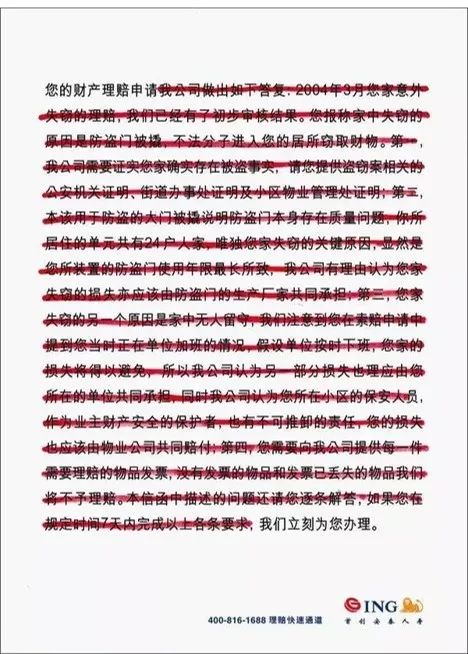 您的财产理赔申请我公司做出如下答复: 2004年3月您家意外
失窃的理赔，我们已经有了初步审核结果。您报称家中失窃的
原因是防盗门被撬，不法分子进入您的居所窃取财物。第一，
我公司需要证实您家确实存在被盗事实，请您提供盗窃案相关的
公安机关证明、街道办事处证明及小区物业管理处证明; 第二，
本该用于防盗的大门被撬说明防盗门本身存在质量问题，你所
居住的单元共有24户人家，唯独您家失窃的关键原因，显然是
您所装置的防盗门使用年限最长所致，我公司有理由认为您家
失窃的损失亦应该由防盗门的生产厂家共同承担; 第三，您家
失窃的另一个原因是家中无人留守，我们注意到您在索赔申请中
提到您当时正在单位加班的情况，假设单位按时下班，您家的
损失将得以避免，所以我公司认为另一部分损失也理应由您
所在的单位共同承担，同时我公司认为您所在小区的保安人员，
作为业主财产安全的保护者，也有不可推卸的责任，您的损失
也应该由物业公司共同赔付; 第四，您需要向我公司提供每一件
需要理赔的物品发票，没有发票的物品和发票已丢失的物品我们
将不予理赔。本信函中描述的问题还请您逐条解答，如果您在
规定时间7天内完成以上各条要求，我们立刻为您办理。
400-816-1688 理赔快速通道
ING
首创安泰人寿